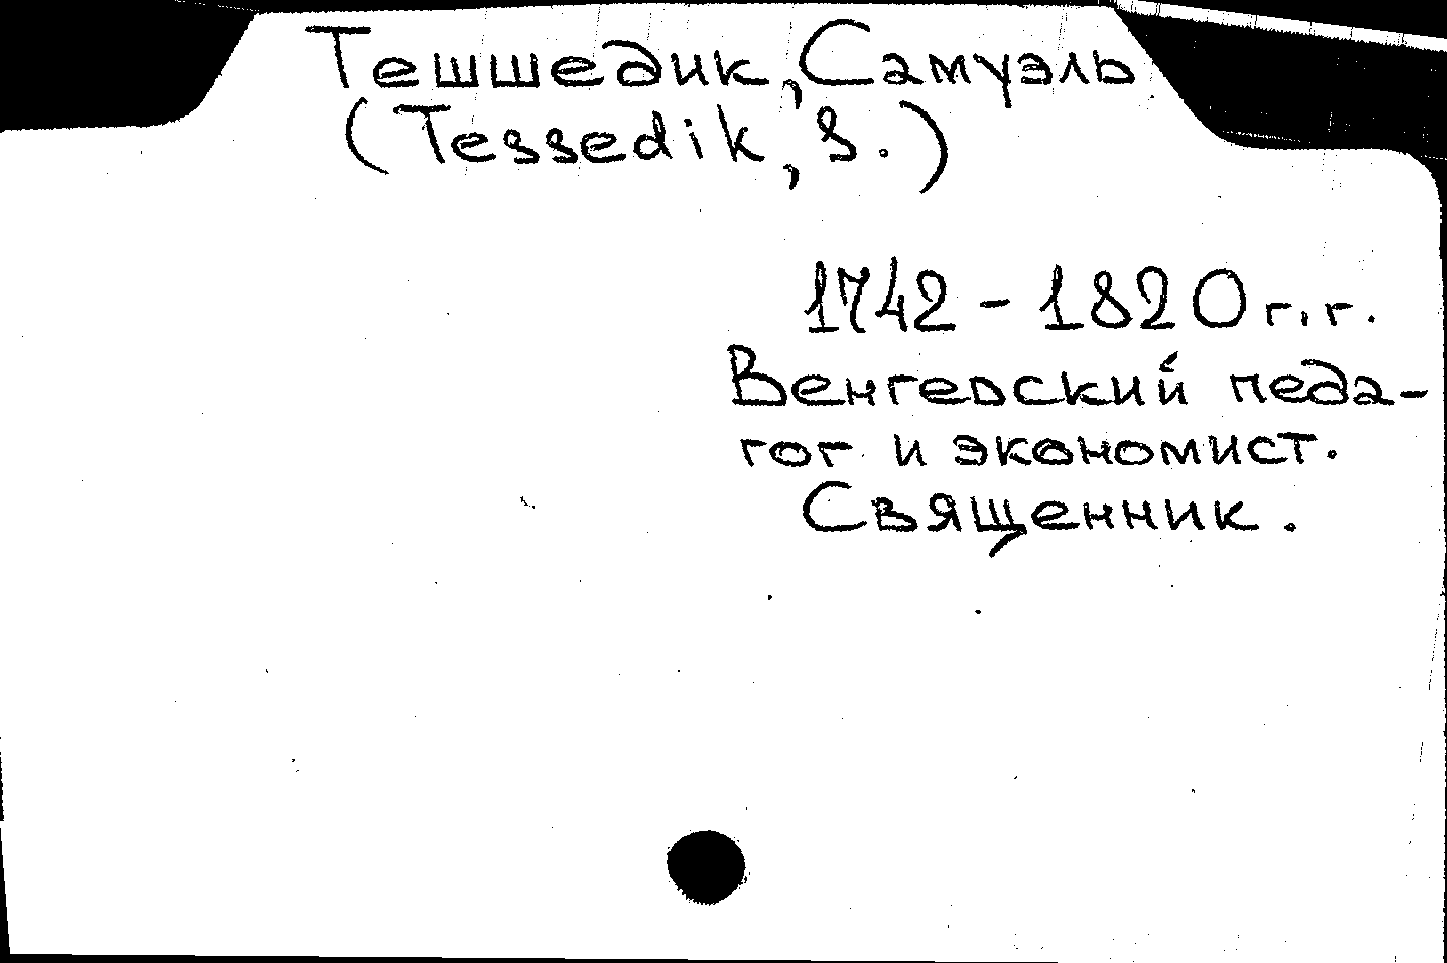 Тешшедик, Самуэль
(Tessedik, S.)
1742 - 1820 г.г.
Венгерский педа-
гог и экономист.
Священник.